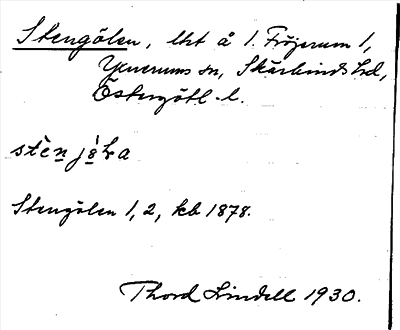 Stengölen, lht å 1. Fröjerum 1,
Yxnerums sn, Skärkinds hd,
Östergötl. l.
stèn
Stengölen 1, 2, kb 1878.
Thord Lindell 1930.